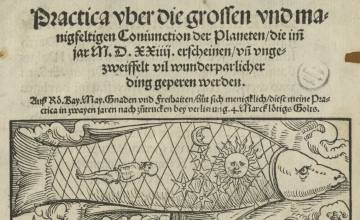 Practica vber die grossen vnd ma-
nigfeltigen Coniunction der Planeten/ die im
jar M. D. XXiiij. erscheinen/ vñ vnge-
zweiffelt vil wunderparlicher
ding geperen werden.
Auß Rö. Kay. May. Gnaden vnd Freihaiten/ hüt sich menigklich/ diese meine Pra-
ctica in zwayen jaren nach zůtrucken bey verlierung. 4. Marck lötigs Golts.